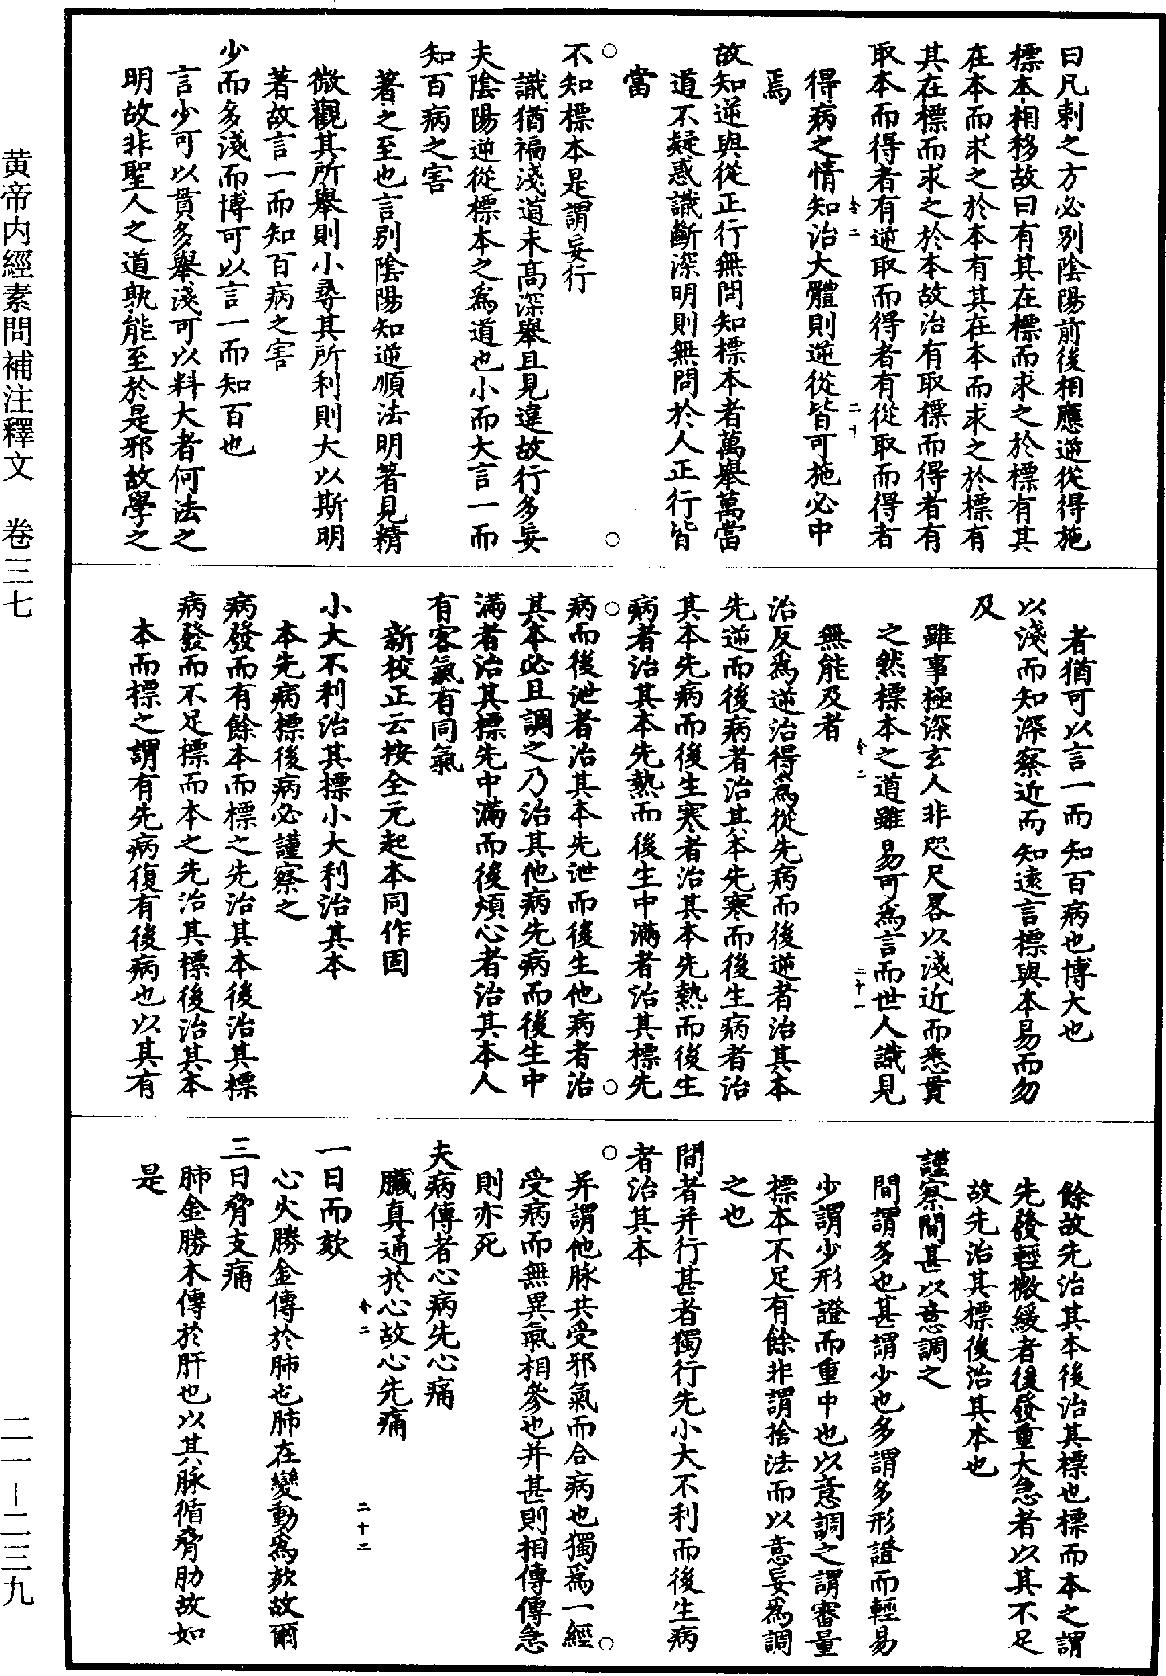 黄帝内經素問補注釋文　卷三七
二一－二三九
曰凡刺之方必別陰陽前後相應逆從得施
標本相移故曰有其在標而求之於標有其
在本而求之於本有其在本而求之於標有
其在標而求之於本故治有取標而得者有
取本而得者有逆取而得者有從取而得者
得病之情知治大體則逆從皆可施必中
焉
故知逆與從正行無問知標本者萬舉萬當
道不疑惑識斷深明則無問於人正行皆
當
不知標本是謂妄行
識猶褊淺道未高深舉且見違故行多妄
夫陰陽逆從標本之爲道也小而大言一而
知百病之害
著之至也言別陰陽知逆順法明著見精
微觀其所舉則小尋其所利則大以斯明
著故言一而知百病之害
少而多淺而博可以言一而知百也
言少可以貫多舉淺可以料大者何法之
明故非聖人之道孰能至於是邪故學之
者猶可以言一而知百病也博大也
以淺而知深察近而知遠言標與本易而勿
及
雖事極深玄人非咫尺略以淺近而悉貫
之然標本之道雖易可爲言而世人識見
無能及者
治反爲逆治得爲從先病而後逆者治其本
先逆而後病者治其本先寒而後生病者治
其本先病而後生寒者治其本先熱而後生
病者治其本先熱而後生中滿者治其標先
病而後泄者治其本先泄而後生他病者治
其本必且調之乃治其他病先病而後生中
滿者治其標先中滿而後煩心者治其本人
有客氣有同氣
新校正云按全元起本同作固
小大不利治其標小大利治其本
本先病標後病必謹察之
病發而有餘本而標之先治其本後治其標
病發而不足標而本之先治其標後治其本
本而標之謂有先病復有後病也以其有
餘故先治其本後治其標也標而本之謂
先發輕微緩者後發重大急者以其不足
故先治其標後治其本也
謹察間甚以意調之
間謂多也甚謂少也多謂多形證而輕易
少謂少形證而重中也以意調之謂審量
標本不足有餘非謂捨法而以意妄爲調
之也
間者并行甚者獨行先小大不利而後生病
者治其本
并謂他脉共受邪氣而合病也獨爲一經
受病而無異氣相參也并甚則相傳傳急
則亦死
夫病傳者心病先心痛
臟真通於心故心先痛
一日而欬
心火勝金傳於肺也肺在變動爲欬故爾
三日脅支痛
肺金勝木傳於肝也以其脉循脅肋故如
是